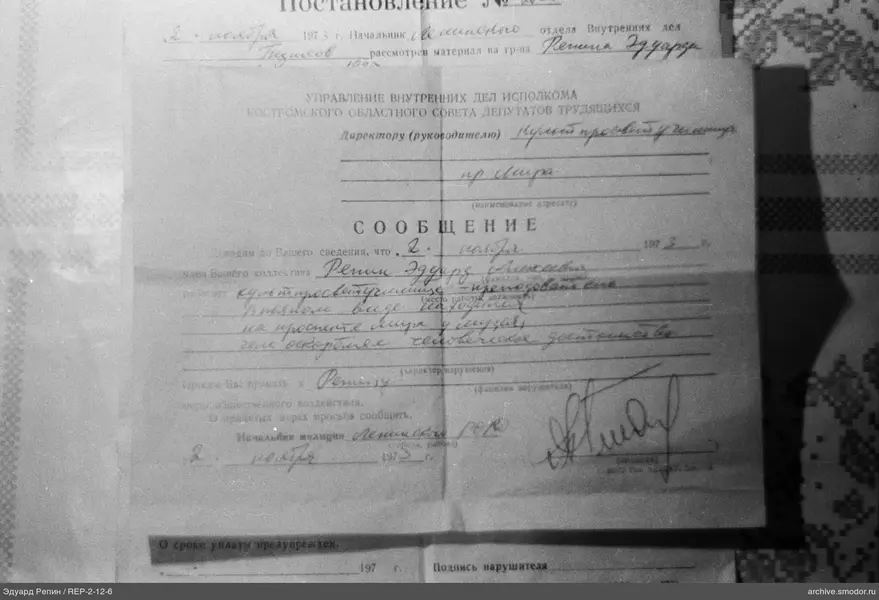 Постановление №
2. ноября 1973 г. Начальник Ленинского отдела Внутренних дел
рассмотрев материал на гр-на Репина Эдуарда
УПРАВЛЕНИЕ ВНУТРЕННИХ ДЕЛ ИСПОЛКОМА
КОСТРОМСКОГО ОБЛАСТНОГО СОВЕТА ДЕПУТАТОВ ТРУДЯЩИХСЯ
Директору (руководителю) Культпросветучилища
пр Мира
(наименование адресата)
СООБЩЕНИЕ
Доводим до Вашего сведения, что 2. ноября 1973 г.
член Вашего коллектива Репин Эдуард
культпросветучилище - преподаватель
в пьяном виде находился
на проспекте Мира у музея,
чем оскорблял человеческое достоинство
(характер нарушения)
Просим Вас принять к Репину
(фамилия нарушителя)
меры общественного воздействия.
О принятых мерах просим сообщить.
Начальник милиции Ленинского РОВД
2. ноября 1973 г.
О сроке уплаты предупрежден.
197 г. Подпись нарушителя
Эдуард Репин / REP-2-12-6
archive.smodor.ru